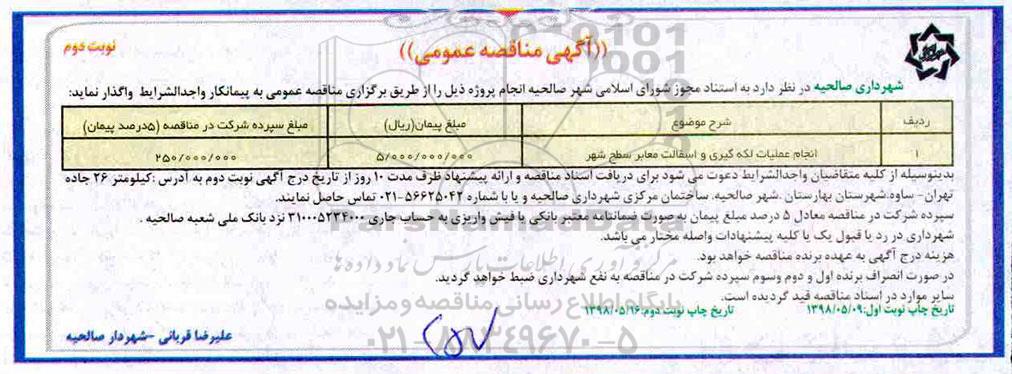 ((آگهی مناقصه عمومی))
نوبت دوم
شهرداری صالحیه در نظر دارد به استناد مجوز شورای اسلامی شهر صالحیه انجام پروژه ذیل را از طریق برگزاری مناقصه عمومی به پیمانکار واجدالشرایط واگذار نماید:
ردیف شرح موضوع مبلغ پیمان(ریال) مبلغ سپرده شرکت در مناقصه (۵درصد پیمان)
۱ انجام عملیات لکه گیری و اسفالت معابر سطح شهر ۵/۰۰۰/۰۰۰/۰۰۰ ۲۵۰/۰۰۰/۰۰۰
بدینوسیله از کلیه متقاضیان واجدالشرایط دعوت می شود برای دریافت اسناد مناقصه و ارائه پیشنهاد ظرف مدت ۱۰ روز از تاریخ درج آگهی نوبت دوم به آدرس :کیلومتر ۲۶ جاده
تهران- ساوه.شهرستان بهارستان .شهر صالحیه. ساختمان مرکزی شهرداری صالحیه و یا با شماره ۵۶۶۲۵۰۴۲-۰۲۱ تماس حاصل نمایند.
سپرده شرکت در مناقصه معادل ۵ درصد مبلغ پیمان به صورت ضمانتنامه معتبر بانکی یا فیش واریزی به حساب جاری ۳۱۰۰۰۵۲۳۴۰۰۰ نزد بانک ملی شعبه صالحیه .
شهرداری در رد یا قبول یک یا کلیه پیشنهادات واصله مختار می باشد.
هزینه درج آگهی به عهده برنده مناقصه خواهد بود.
در صورت انصراف برنده اول و دوم وسوم سپرده شرکت در مناقصه به نفع شهرداری ضبط خواهد گردید.
سایر موارد در اسناد مناقصه قید گردیده است.
تاریخ چاپ نوبت اول:۱۳۹۸/۰۵/۰۹ تاریخ چاپ نوبت دوم:۱۳۹۸/۰۵/۱۶
علیرضا قربانی -شهردار صالحیه
ParsNamadData
مرکز فرآوری اطلاعات پارس نماد داده ها
پایگاه اطلاع رسانی مناقصه و مزایده
۰۲۱-۸۸۳۴۹۶۷۰-۵